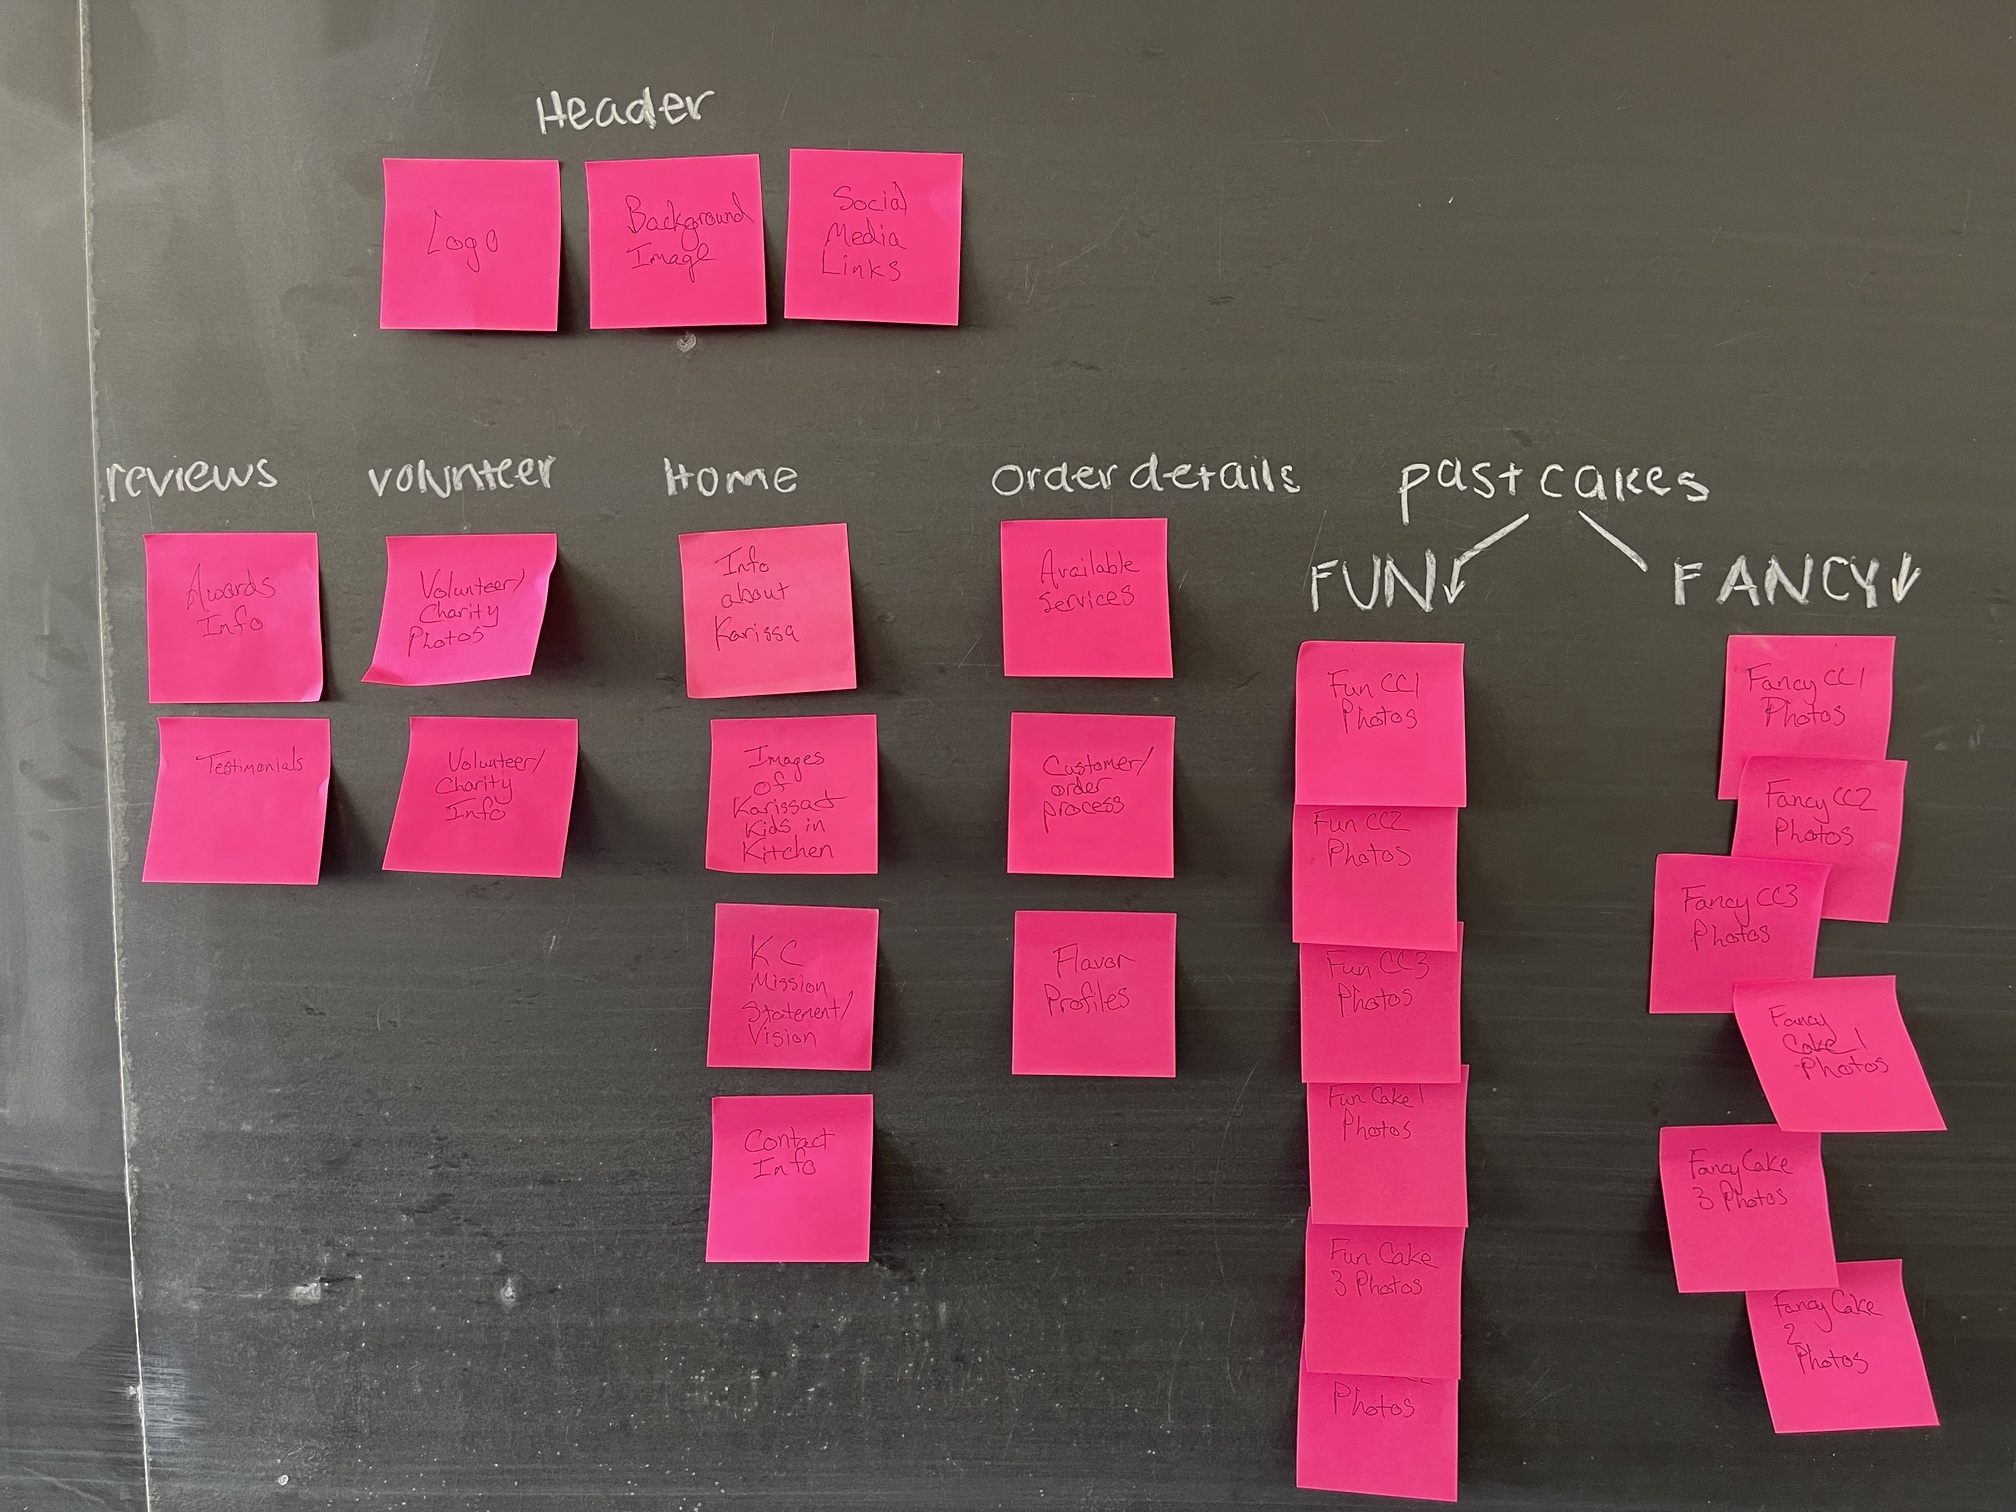 Header
Logo
Background
Image
Social
Media
Links
reviews
Awards
Info
Testimonials
volunteer
Volunteer/
Charity
Photos
Volunteer/
Charity
Info
Home
Info
about
Karissa
Images
of
Karissa+
Kids in
Kitchen
KC
Mission
Statement/
Vision
Contact
Info
Order details
Available
Services
Customer/
order
process
Flavor
Profiles
past cakes
FUN
Fun CC1
Photos
Fun CC2
Photos
Fun CC3
Photos
Fun Cake 1
Photos
Fun Cake
3 Photos
Photos
FANCY
Fancy CC1
Photos
Fancy CC2
Photos
Fancy CC3
Photos
Fancy
Cake 1
Photos
Fancy Cake
3 Photos
Fancy Cake
2
Photos